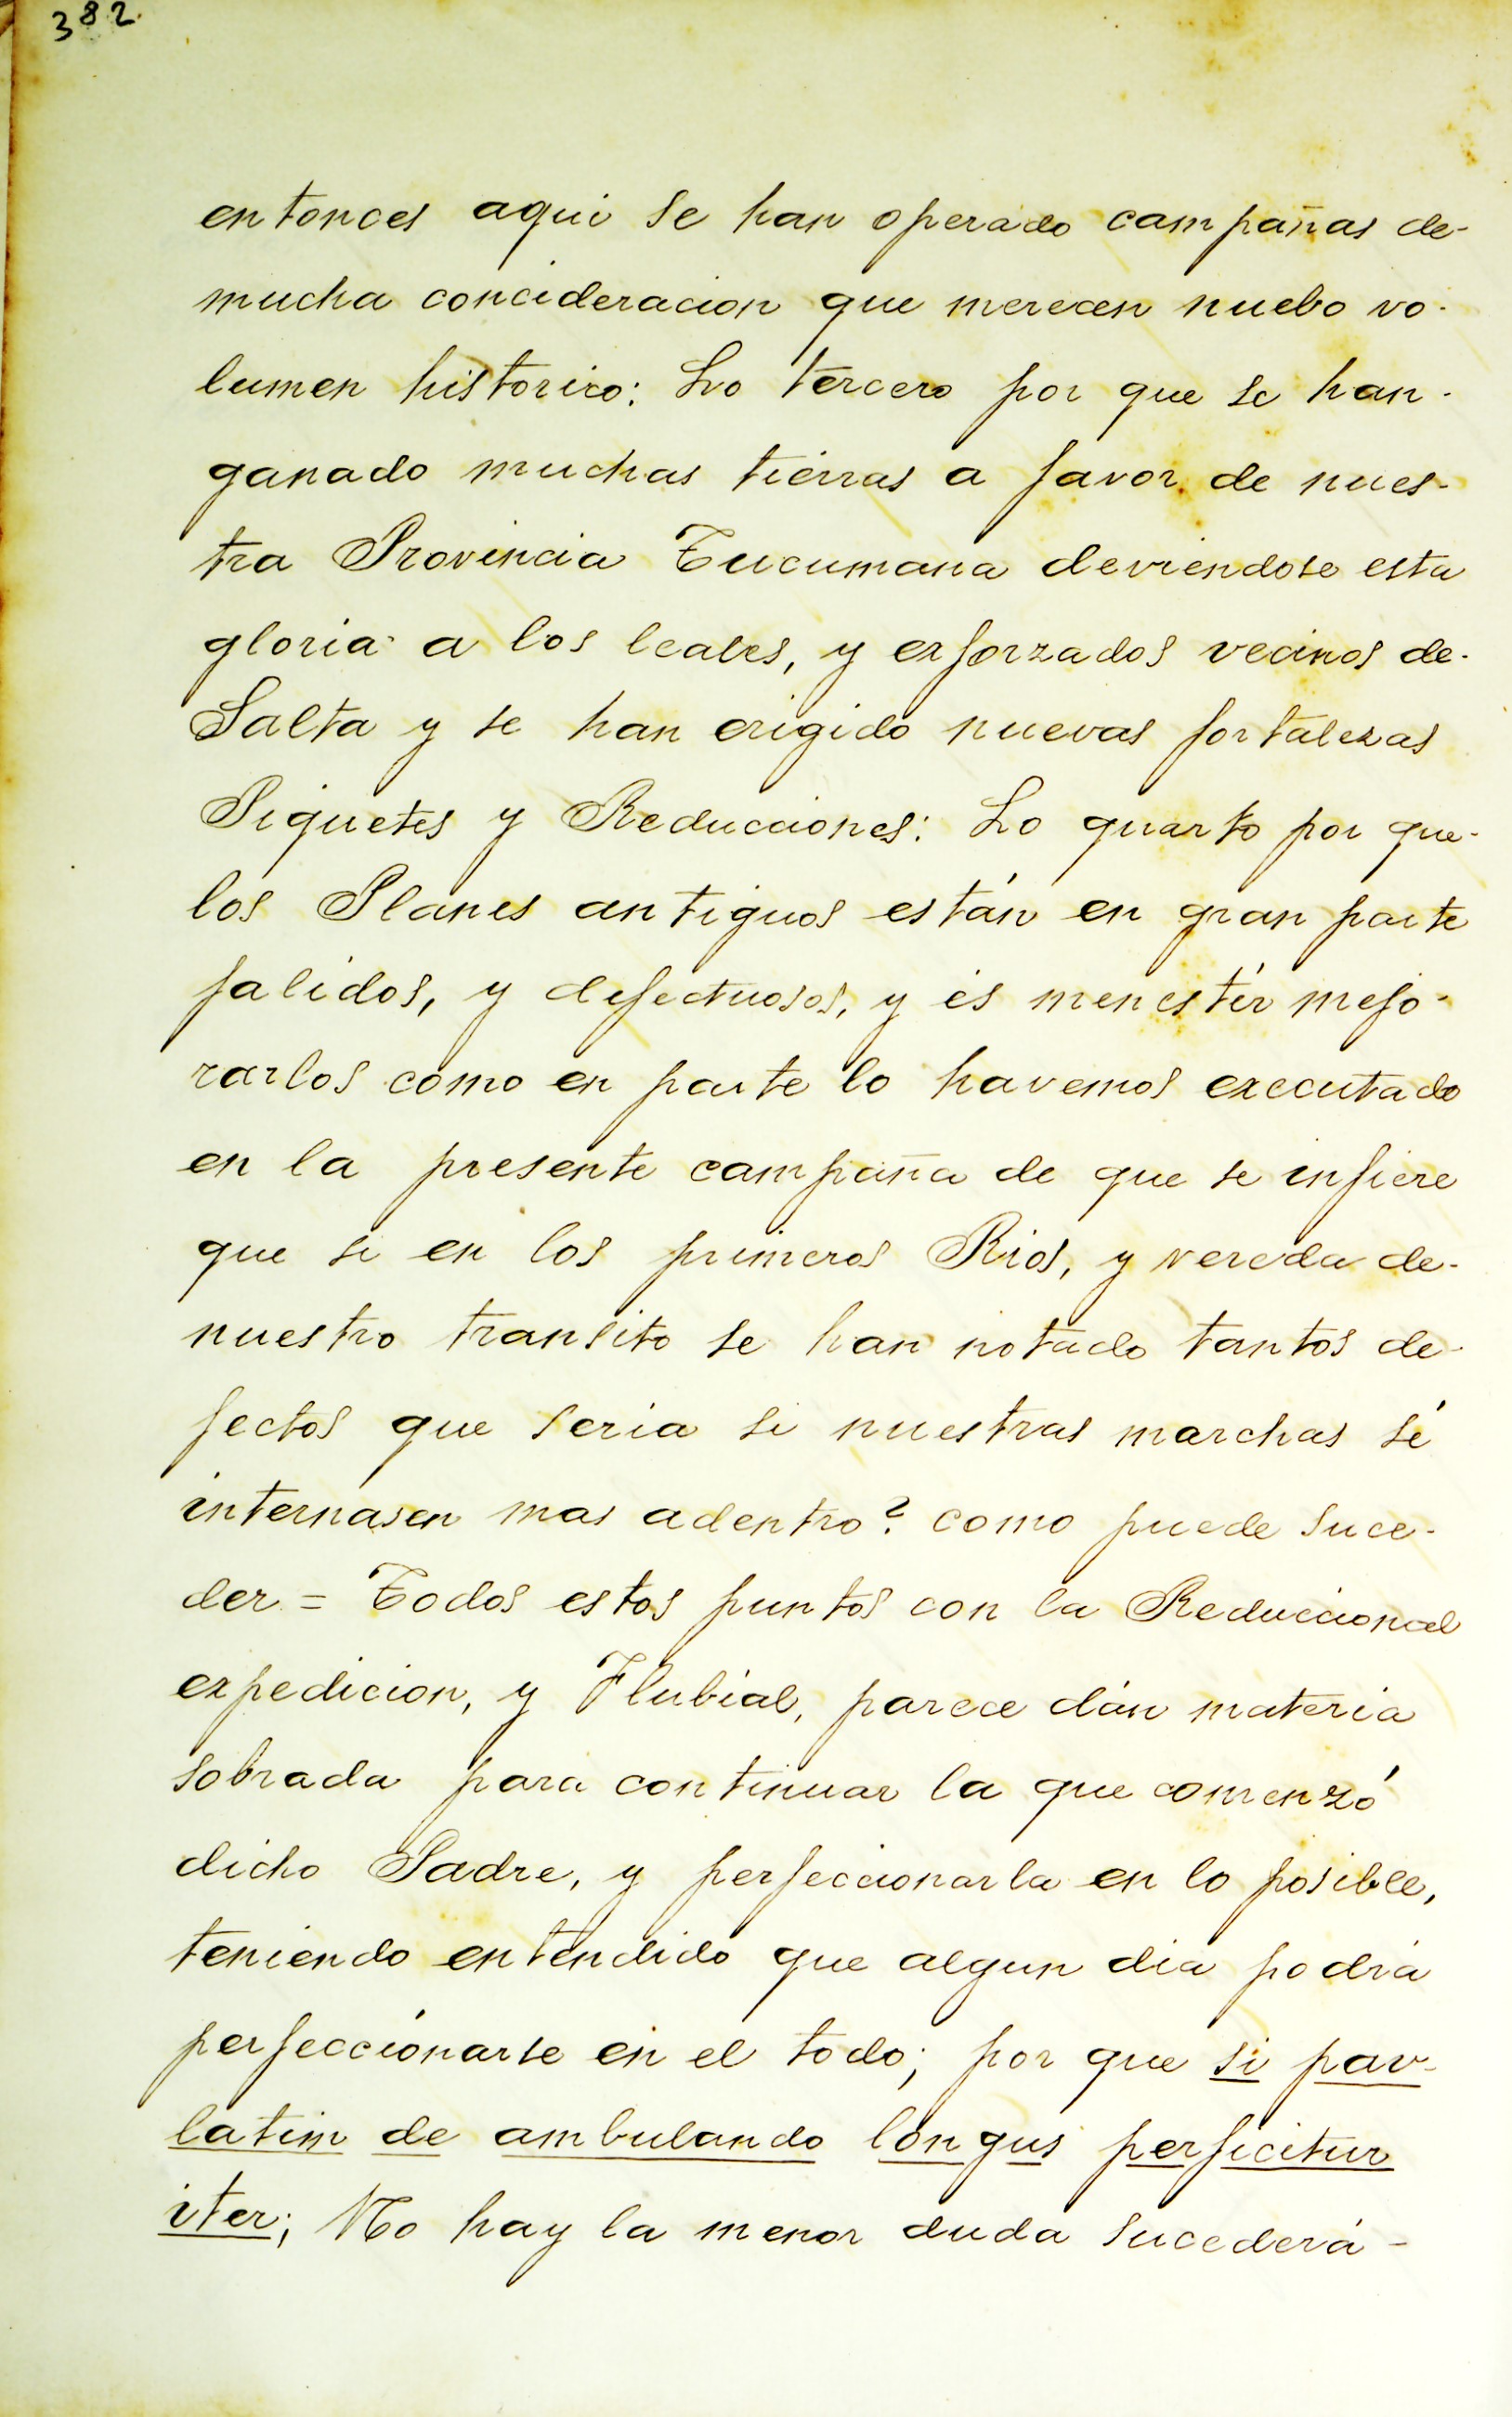 382.
entonces aqui se han operado campañas de-
mucha concideracion que merecen nuebo vo-
lumen historico: Lo tercero por que se han-
ganado muchas tierras a favor de nues-
tra Provincia Tucumana deviendose esta
gloria a los leales, y exforzados vecinos de-
Salta y se han erigido nuevas fortalezas
Piquetes y Reducciones: Lo quarto por que-
los Planes antiguos están en gran parte
falidos, y defectuosos, y és menestér mejo-
rarlos como en parte lo havemos executado
en la presente campaña de que se infiere
que si en los primeros Rios, y vereda de-
nuestro transito se han notado tantos de-
fectos que seria si nuestras marchas sé
internasen mas adentro? como puede suce-
der = Todos estos puntos con la Reduccional
expedicion, y Flubial, parece dán materia
sobrada para continuar la que comenzó
dicho Padre, y perfeccionarla en lo posible,
teniendo entendido que algun dia podrá
perfeccionarse en el todo; por que si pav-
latim de ambulando longus perficitur
iter; No hay la menor duda sucederá-